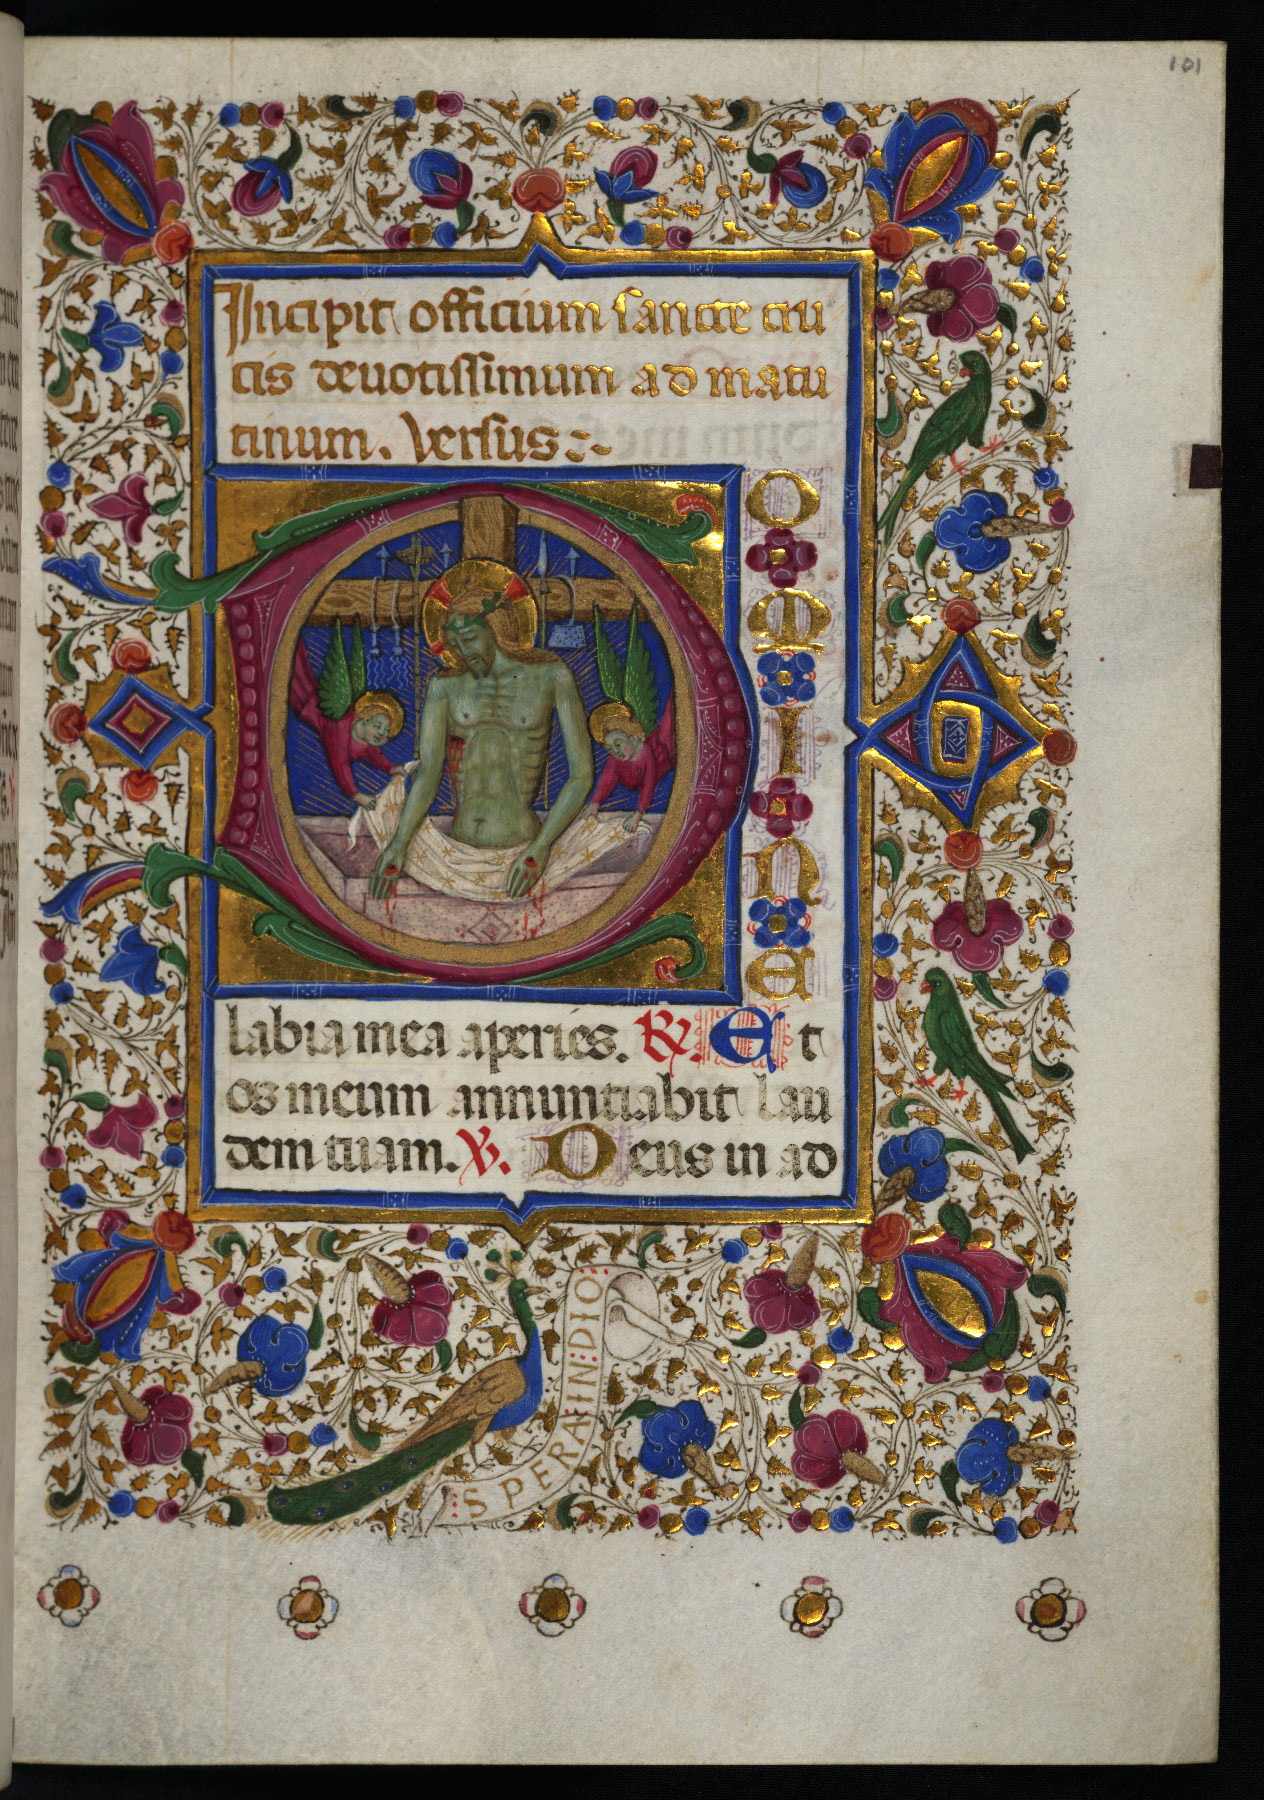 101
Incipit officium sancte cru
cis deuotissimum ad matu
tinum. Versus
D
O
M
I
N
E
labia mea aperies. ℟. Et
os meum annuntiabit lau
dem tuam. ℣. Deus in ad
SPERA:IN:DIO